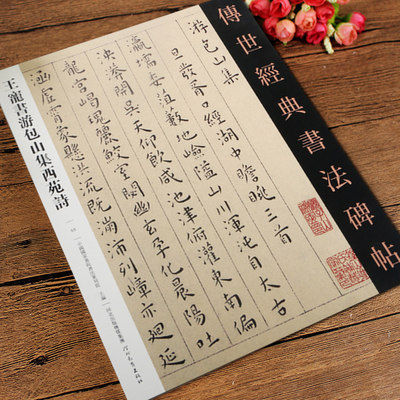 傳世經典書法碑帖
游包山集
旦發胥口經湖中瞻眺三首
瀛壖委沮藪地崄隘山川渾沌自太古
泱漭開吳天仰飲咸池津俯灌東南偏
龍宮峭瑰麗鮫室閟幽玄孕化晨陽吐
涵虛霄象懸洪流既滿沛列嶂亦迴延
王寵書游包山集西苑詩